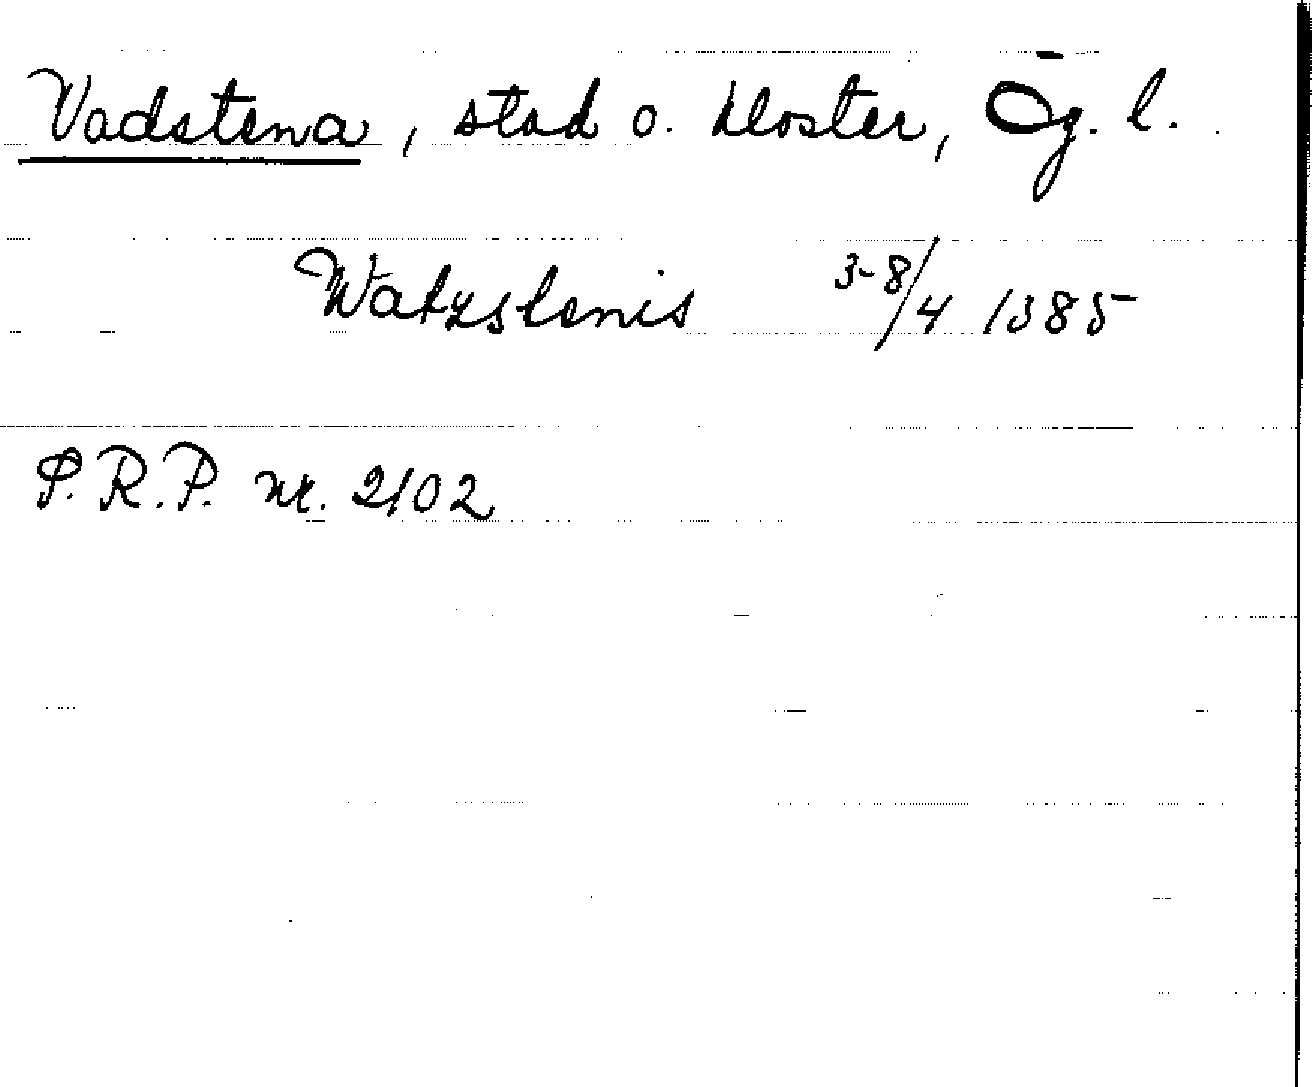 Vadstena, stad o. kloster, Ög. l.
Watzstenis 3-8/4 1385
P.R.P. nr. 2102